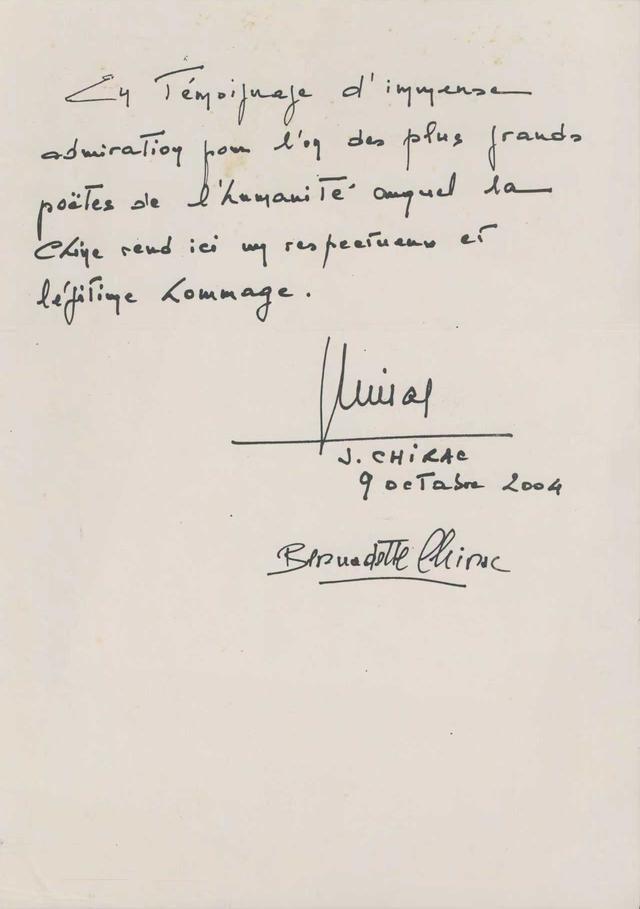 En Témoignage d'immense
admiration pour l'un des plus grands
poëtes de l'humanité auquel la
Chine rend ici un respectueux et
légitime hommage.
Chirac
J. CHIRAC
9 octobre 2004
Bernadette Chirac